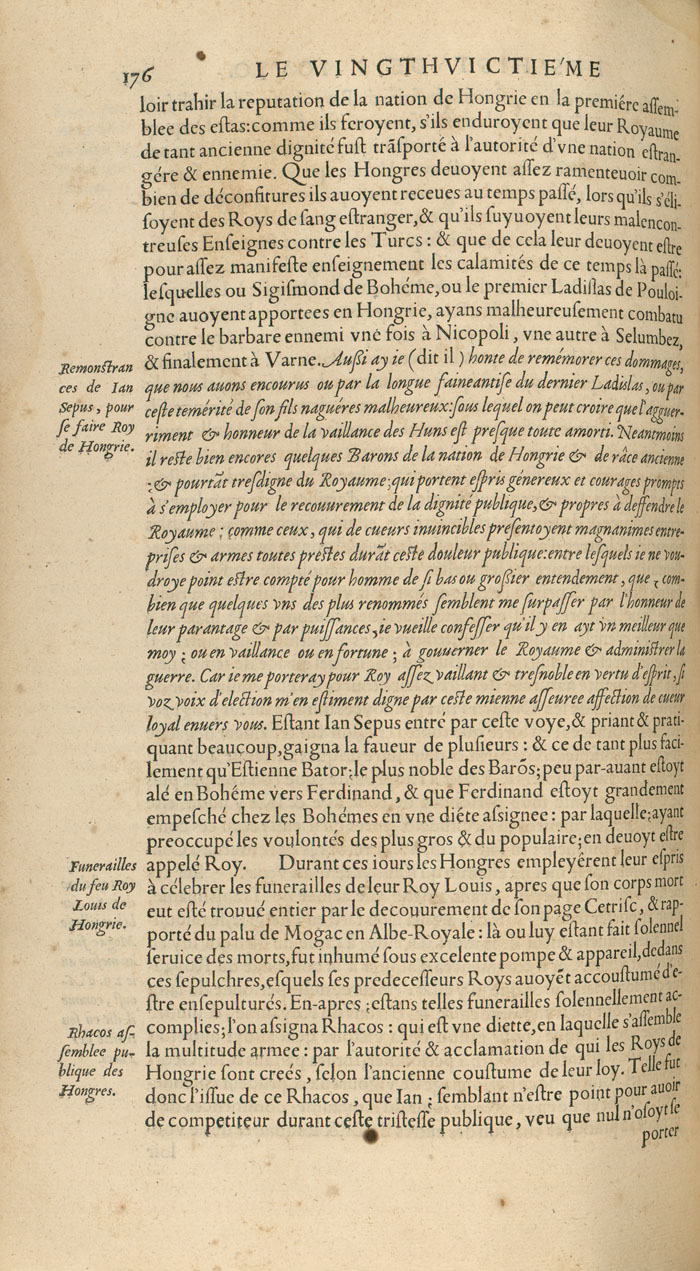 176 LE VINGTHVICTIE'ME
loir trahir la reputation de la nation de Hongrie en la premiére assem-
blee des estas: comme ils feroyent, s'ils enduroyent que leur Royaume
de tant ancienne dignité fust trãsporté à l'autorité d'vne nation estran-
gére & ennemie. Que les Hongres deuoyent assez ramenteuoir com-
bien de déconfitures ils auoyent receues au temps passé, lors qu'ils s'éli-
soyent des Roys de sang estranger, & qu'ils suyuoyent leurs malencon-
treuses Enseignes contre les Turcs : & que de cela leur deuoyent estre
pour assez manifeste enseignement les calamités de ce temps là passé:
lesquelles ou Sigismond de Bohéme, ou le premier Ladislas de Pouloi-
gne auoyent apportees en Hongrie, ayans malheureusement combatu
contre le barbare ennemi vne fois à Nicopoli, vne autre à Selumbez,
& finalement à Varne. Aussi ay ie (dit il) honte de remémorer ces dommages,
que nous auons encourus ou par la longue faineantise du dernier Ladislas, ou par
ceste temérité de son fils naguéres malheureux: sous lequel on peut croire que l'aguer-
riment & honneur de la vaillance des Huns est presque toute amorti. Neantmoins
il reste bien encores quelques Barons de la nation de Hongrie & de râce ancienne
;& pourtãt tresdigne du Royaume; qui portent espris géneréux et courages prompts
à s'employer pour le recouurement de la dignité publique, & propres à deffendre le
Royaume ; comme ceux, qui de cueurs inuincibles presentoyent magnanimes entre-
prises & armes toutes prestes durãt ceste douleur publique: entre lesquels ie ne vou-
droye point estre compté pour homme de si bas ou grossier entendement, que ; com-
bien que quelques vns des plus renommés semblent me surpasser par l'honneur de
leur parantage & par puissances ; ie vueille confesser qu'il y en ayt vn meilleur que
moy ; ou en vaillance ou en fortune ; à gouuerner le Royaume & administrer la
guerre. Car ie me porteray pour Roy assez vaillant & tresnoble en vertu d'esprit, si
voz voix d'election m'en estiment digne par ceste mienne asseuree affection de cueur
loyal enuers vous. Estant Ian Sepus entré par ceste voye, & priant & prati-
quant beaucoup, gaigna la faueur de plusieurs : & ce de tant plus faci-
lement qu'Estienne Bator; le plus noble des Barõs; peu par-auant estoyt
alé en Bohéme vers Ferdinand, & que Ferdinand estoyt grandement
empesché chez les Bohémes en vne diéte assignee : par laquelle; ayant
preoccupé les voulontés des plus gros & du populaire; en deuoyt estre
appelé Roy. Durant ces iours les Hongres empleyérent leur espris
à célebrer les funerailles de leur Roy Louis, apres que son corps mort
eut esté trouué entier par le decouurement de son page Cetrisc, & rap-
porté du palu de Mogac en Albe-Royale : là ou luy estant fait solennel
seruice des morts, fut inhumé sous excelente pompe & appareil, dedans
ces sepulchres, esquels ses predecesseurs Roys auoyẽt accoustumé d'e-
stre ensepulturés. En-apres ; estans telles funerailles solennellement ac-
complies; l'on assigna Rhacos : qui est vne diette, en laquelle s'assemble
la multitude armee : par l'autorité & acclamation de qui les Roys de
Hongrie sont creés, selon l'ancienne coustume de leur loy. Telle fut
donc l'issue de ce Rhacos, que Ian ; semblant n'estre point pour auoir
de competiteur durant ceste tristesse publique, veu que nul n'osoyt se
porter
Remonstran
ces de Ian
Sepus, pour
se faire Roy
de Hongrie.
Funerailles
du feu Roy
Louis de
Hongrie.
Rhacos as-
semblee pu-
blique des
Hongres.